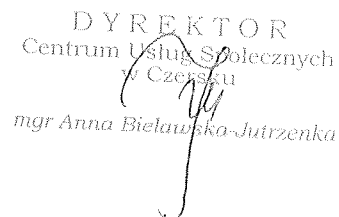 DYREKTOR
Centrum Usług Społecznych
w Czersku
mgr Anna Bielawska-Jutrzenka